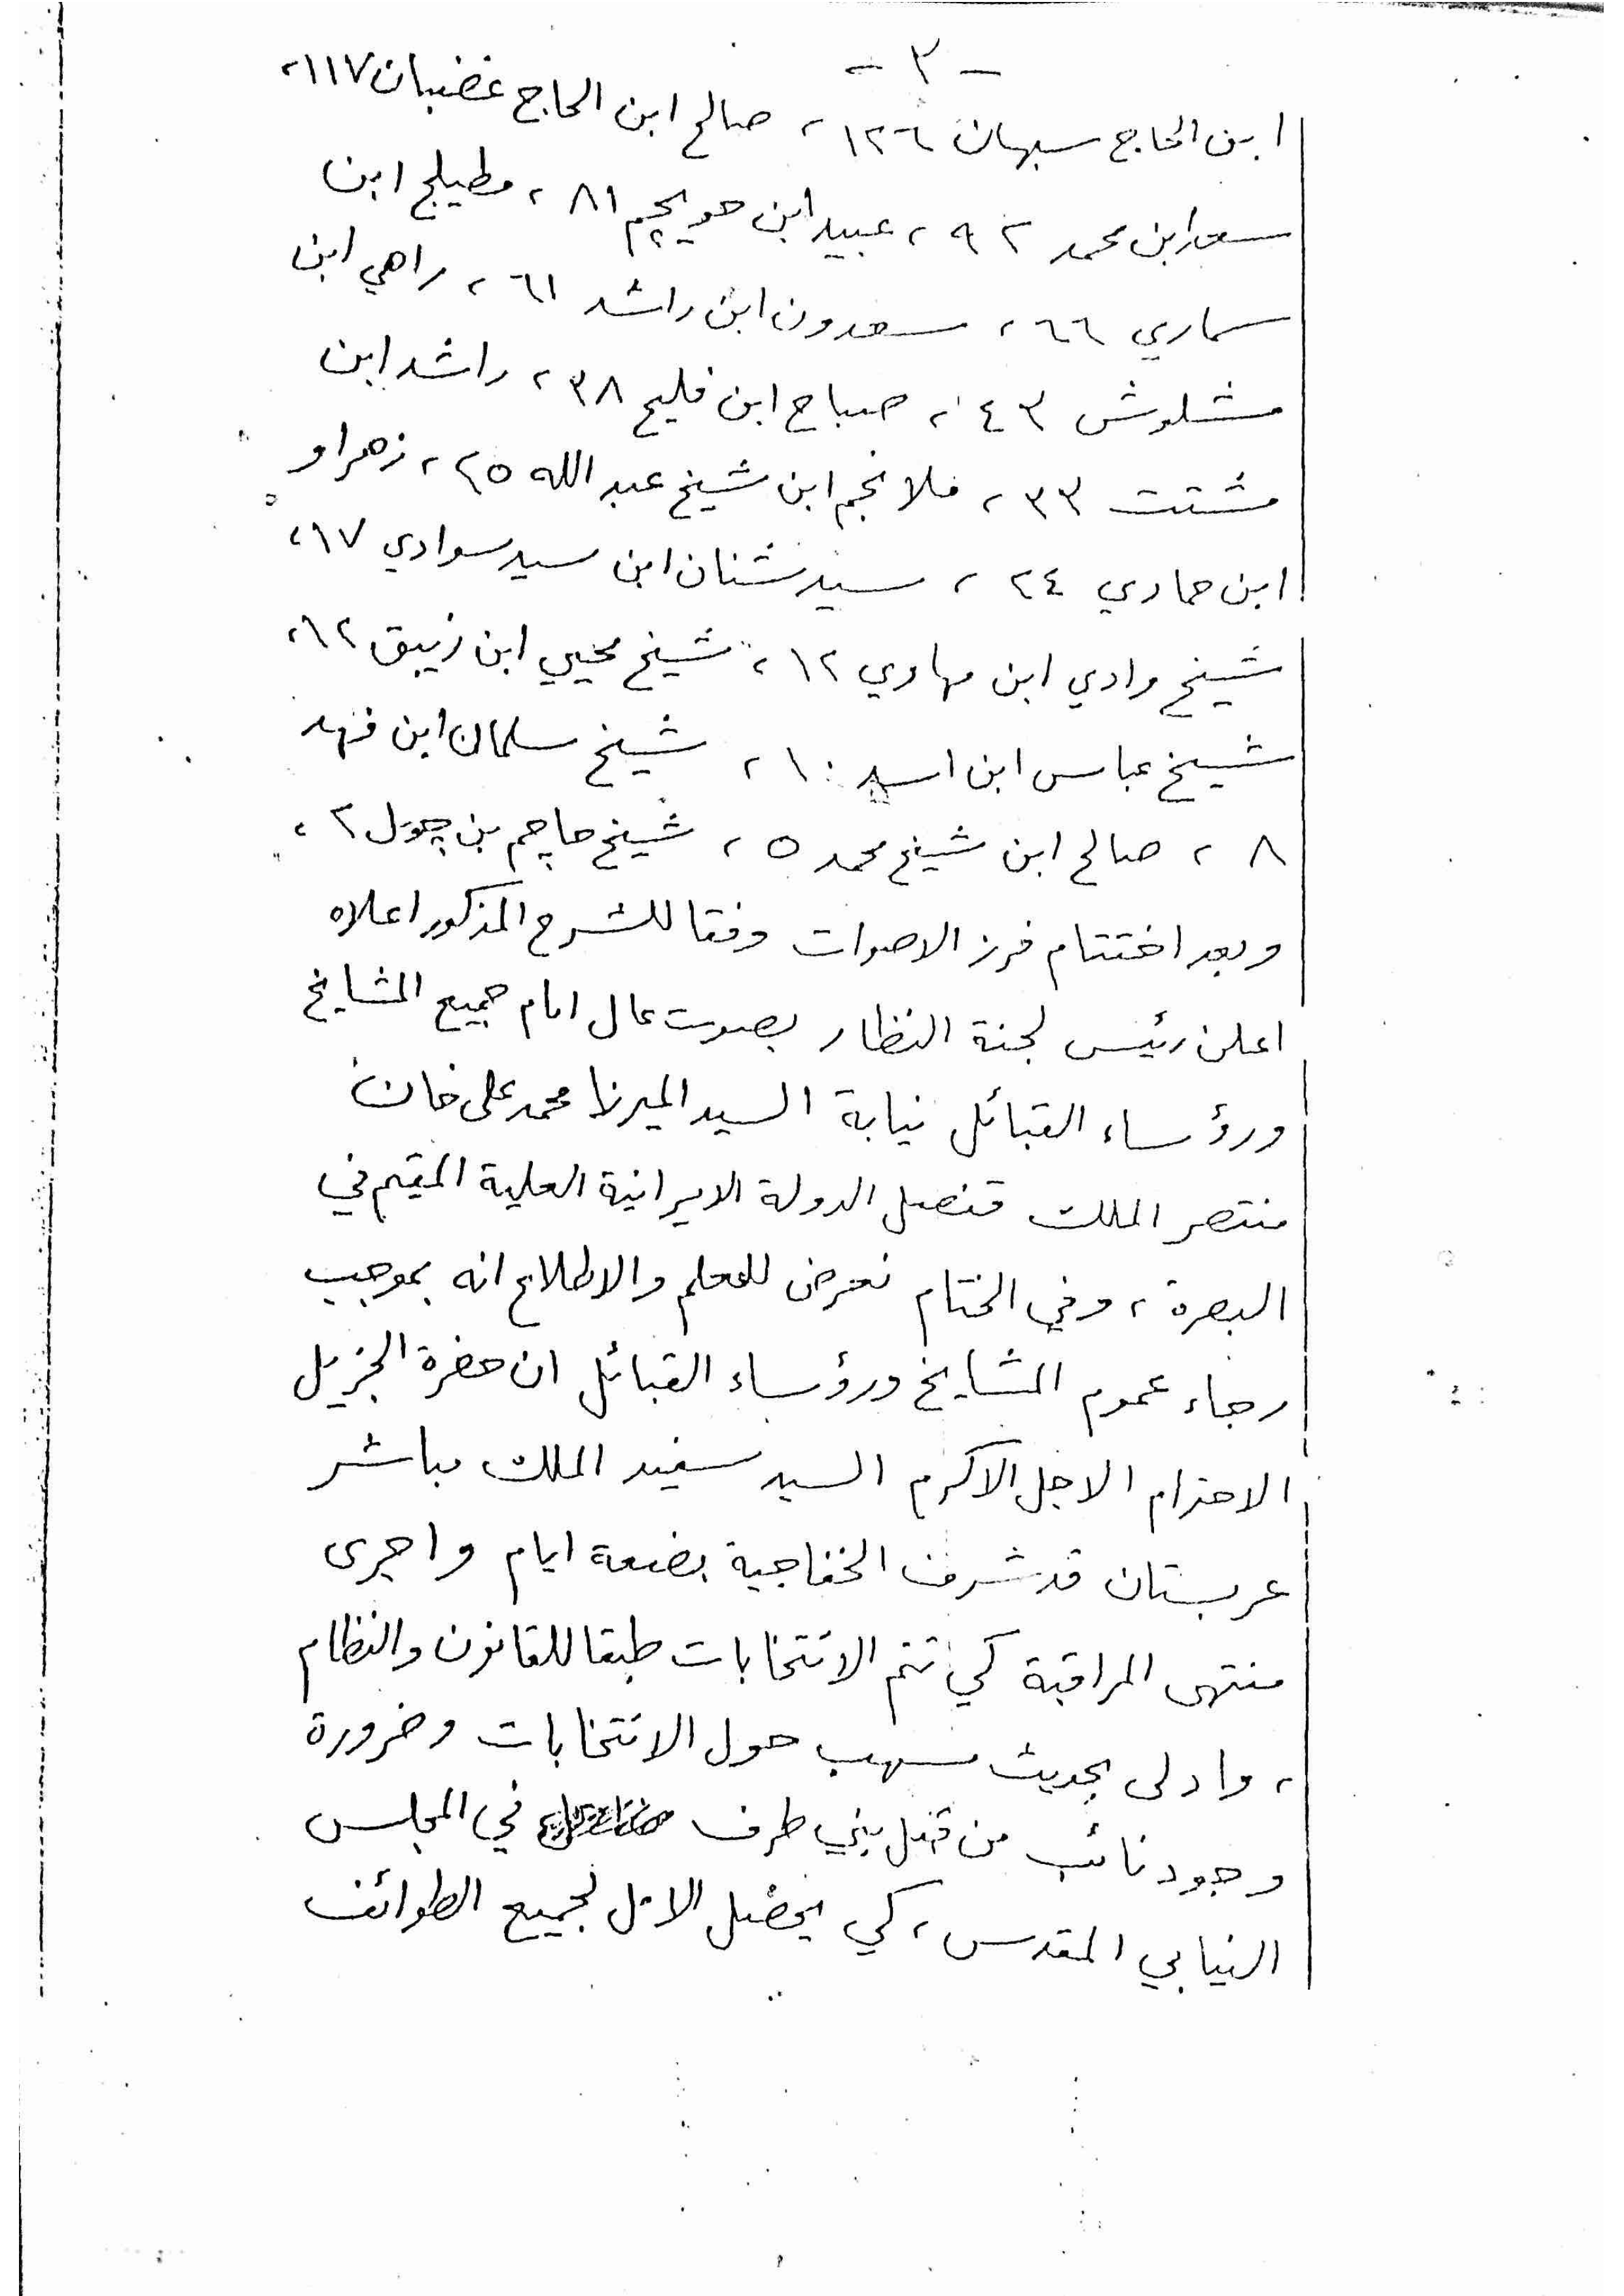 - ٣ -
ابن الحاج سبهان ١٢٦ ، صالح ابن الحاج غضبان ١١٧ ،
سعد ابن محمد ٩٢ ، عبيد ابن حويچم ٨١ ، مطيلج ابن
سماري ٦٦ ، سعدون ابن راشد ٦١ ، راهي ابن
مشلوش ٤٣ ، صباح ابن فليح ٣٨ ، راشد ابن
مشتت ٣٣ ، ملا نجم ابن شيخ عبد الله ٢٥ ، زهراو
ابن حمادي ٢٤ ، سيد شنان ابن سيد سوادي ١٧ ،
شيخ وادي ابن مهاوي ١٢ ، شيخ محيي ابن زيبق ١٢ ،
شيخ عباس ابن اسد ١٠ ، شيخ سلمان ابن فهد
٨ ، صالح ابن شيخ محمد ٥ ، شيخ حاچم بن چول ٢ ،
وبعد اختتام فرز الاصوات وفقا للشرح المذكور اعلاه
اعلن رئيس لجنة النظار بصوت عال امام جميع المشايخ
ورؤساء القبائل نيابة السيد الميرزا محمد على خان
منتصر الملك قنصل الدولة الايرانية العلية المقيم في
البصرة ، وفي الختام نعرض للعلم والاطلاع انه بموجب
رجاء عموم المشايخ ورؤساء القبائل ان حضرة الجزيل
الاحترام الاجل الاكرم السيد سفيد الملك مباشر
عربستان قد شرف الخفاجية بضعة ايام واجرى
منتهى المراقبة كي تتم الانتخابات طبقا للقانون والنظام
، وادلى بحديث مسهب حول الانتخابات وضرورة
وجود نائب من قبل بني طرف في المجلس
النيابي المقدس ، كي يحصل الامل لجميع الطوائف